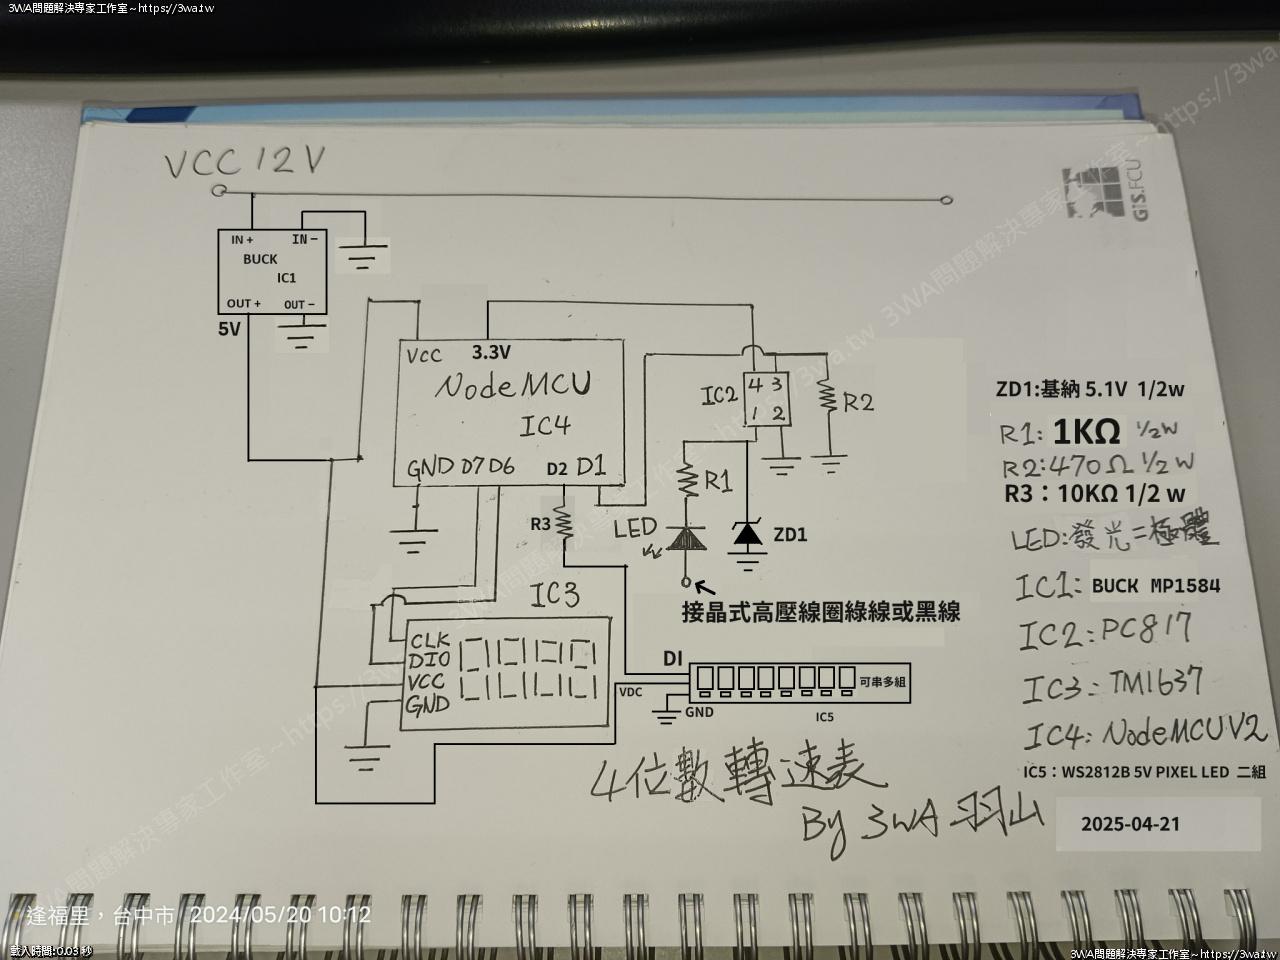 3WA問題解決專家工作室~https://3wa.tw
VCC 12V
GIS.FCU
IN + IN −
BUCK
IC1
OUT + OUT −
5V
VCC 3.3V
NodeMCU
IC4
GND D7 D6 D2 D1
IC2
4 3
1 2
R2
R1
R3
LED
ZD1
接晶式高壓線圈綠線或黑線
IC3
CLK
DIO
VCC
GND
DI
VDC
GND
可串多組
IC5
ZD1:基納 5.1V 1/2w
R1: 1KΩ 1/2W
R2:470Ω 1/2W
R3：10KΩ 1/2 w
LED:發光二極體
IC1: BUCK MP1584
IC2: PC817
IC3: TM1637
IC4: NodeMCU V2
IC5：WS2812B 5V PIXEL LED 二組
4位數轉速表
By 3WA 羽山
2025-04-21
3WA問題解決專家工作室~https://3wa.tw
3WA問題解決專家工作室~https://3wa.tw
逢福里，台中市 2024/05/20 10:12
載入時間:0.03 秒
3WA問題解決專家工作室~https://3wa.tw